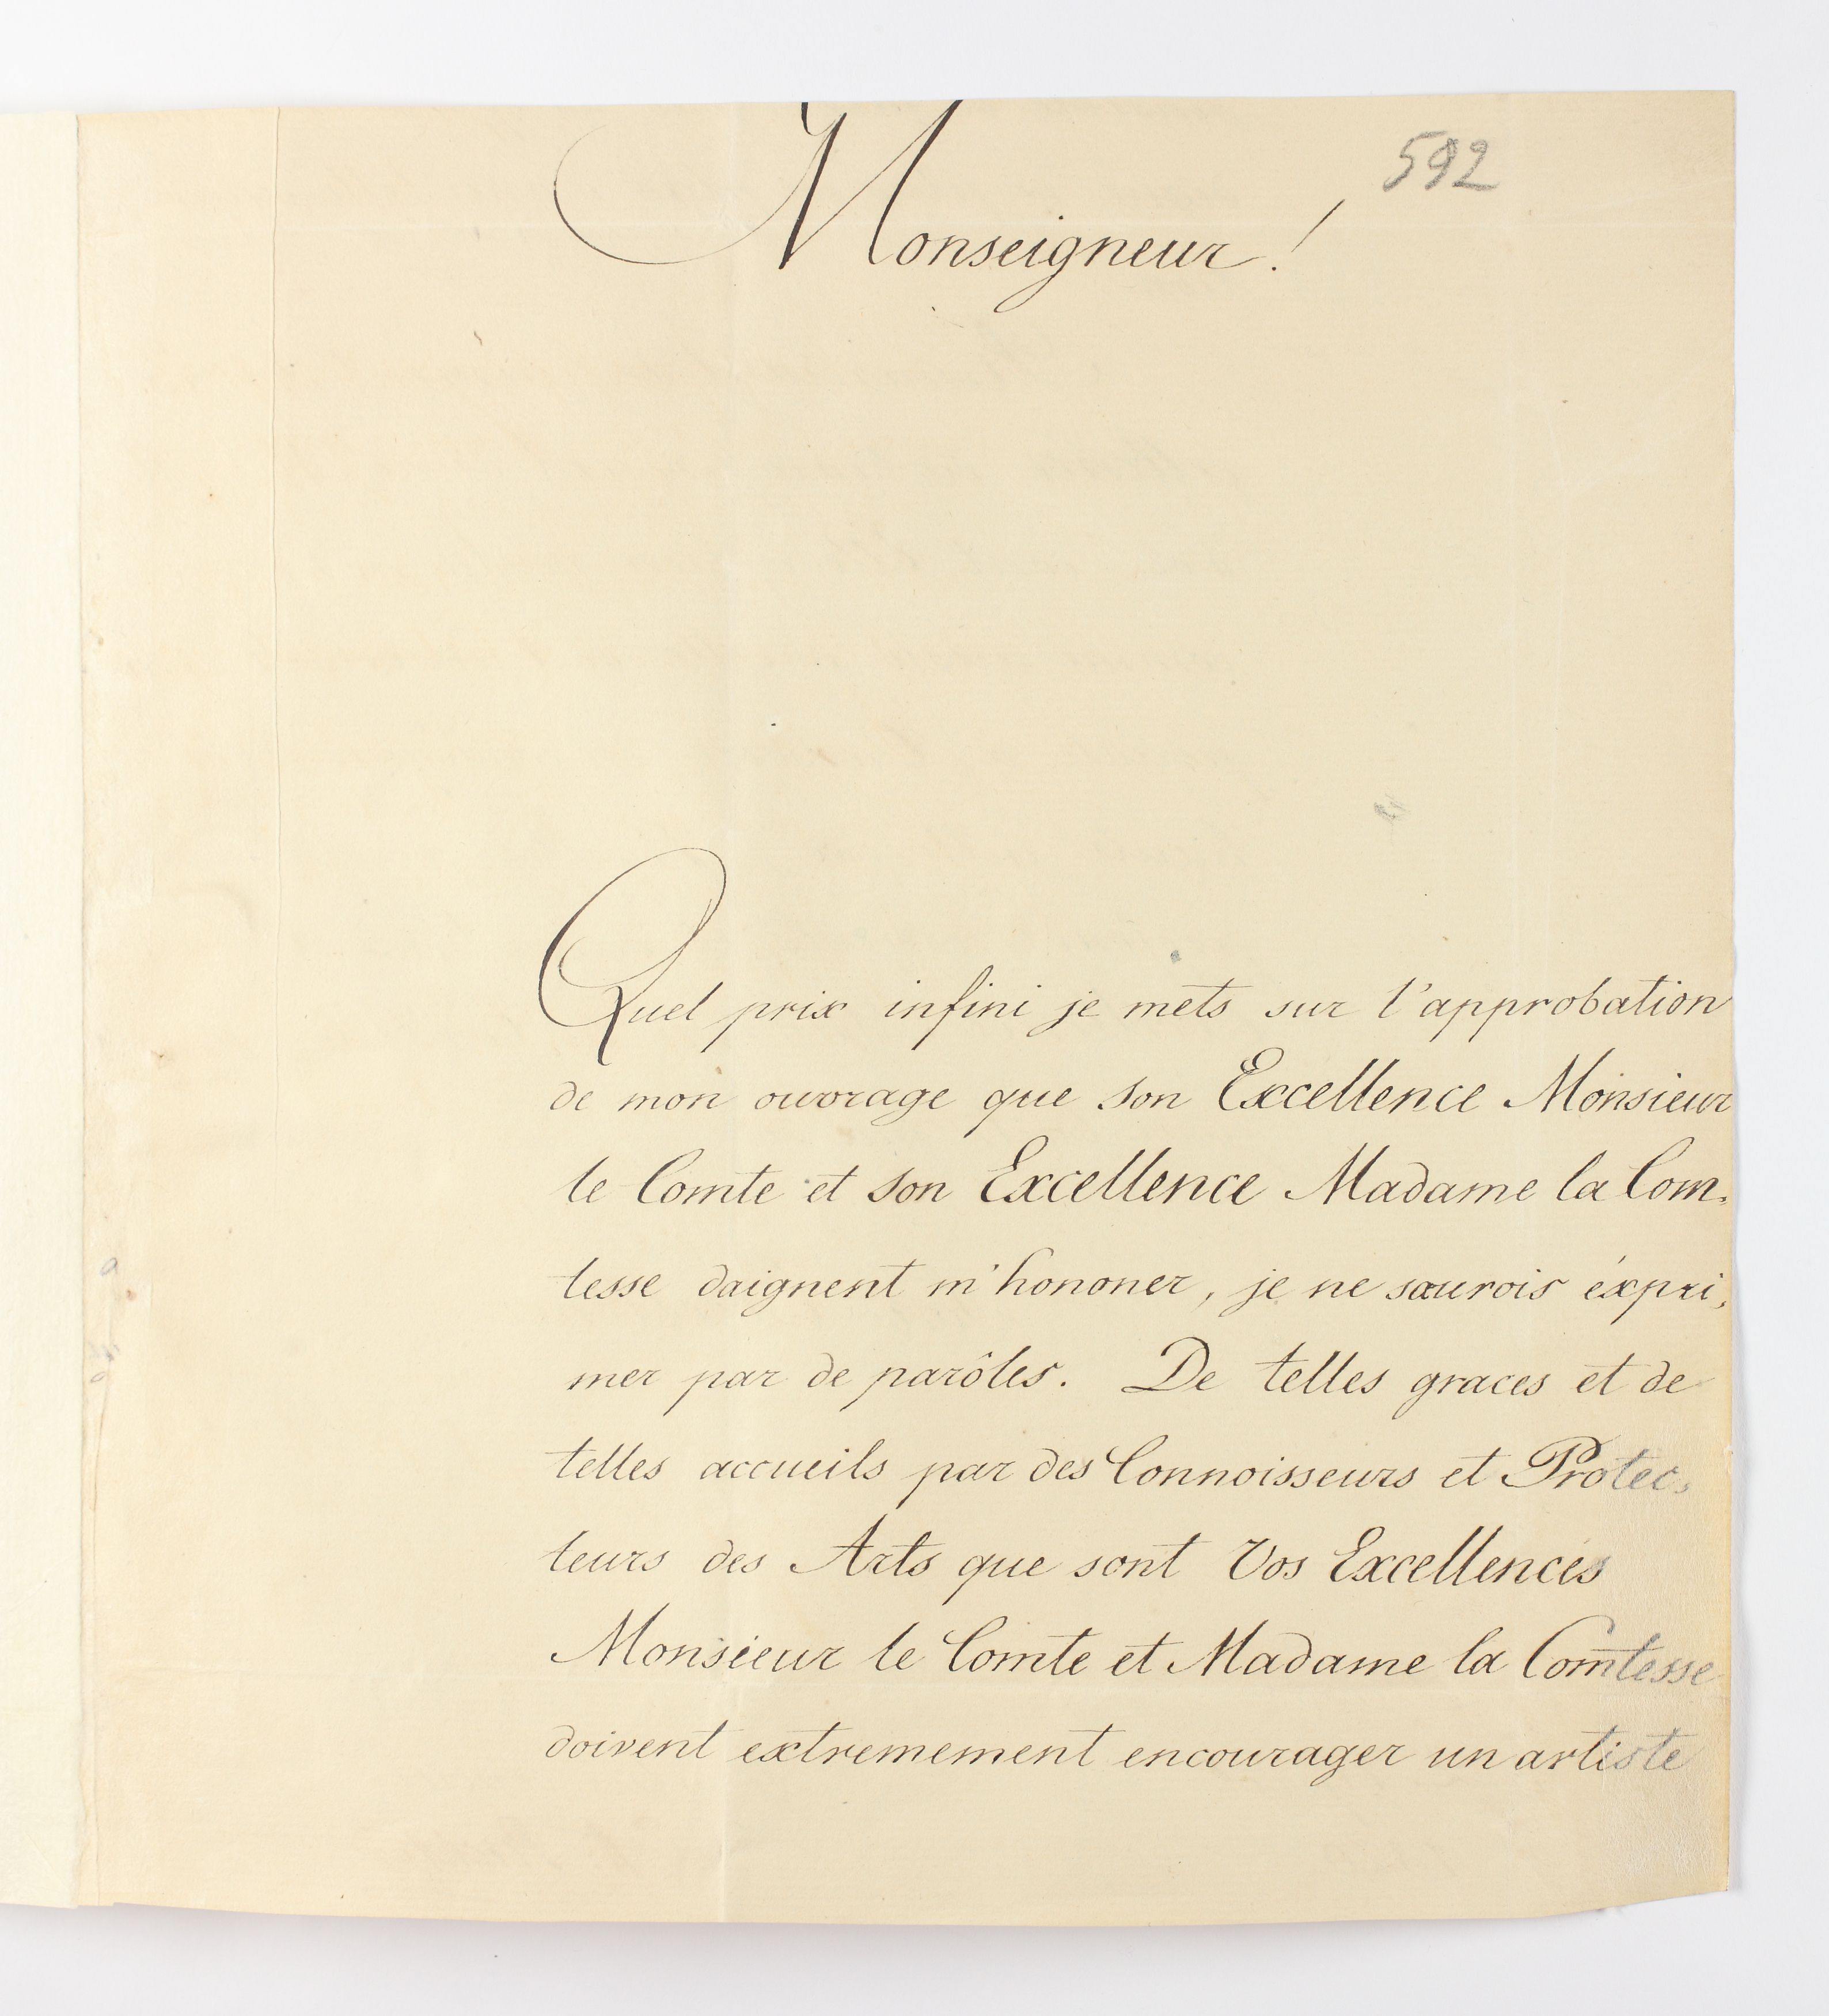 592
Monseigneur!
Quel prix infini je mets sur l'approbation
de mon ouvrage que son Excellence Monsieur
le Comte et son Excellence Madame la Com,
tesse daignent m'hononer, je ne saurois éxpri,
mer par de parôles. De telles graces et de
telles accueils par des Connoisseurs et Protec,
teurs des Arts que sont Vos Excellences
Monsieur le Comte et Madame la Comtesse
doivent extremement encourager un artiste